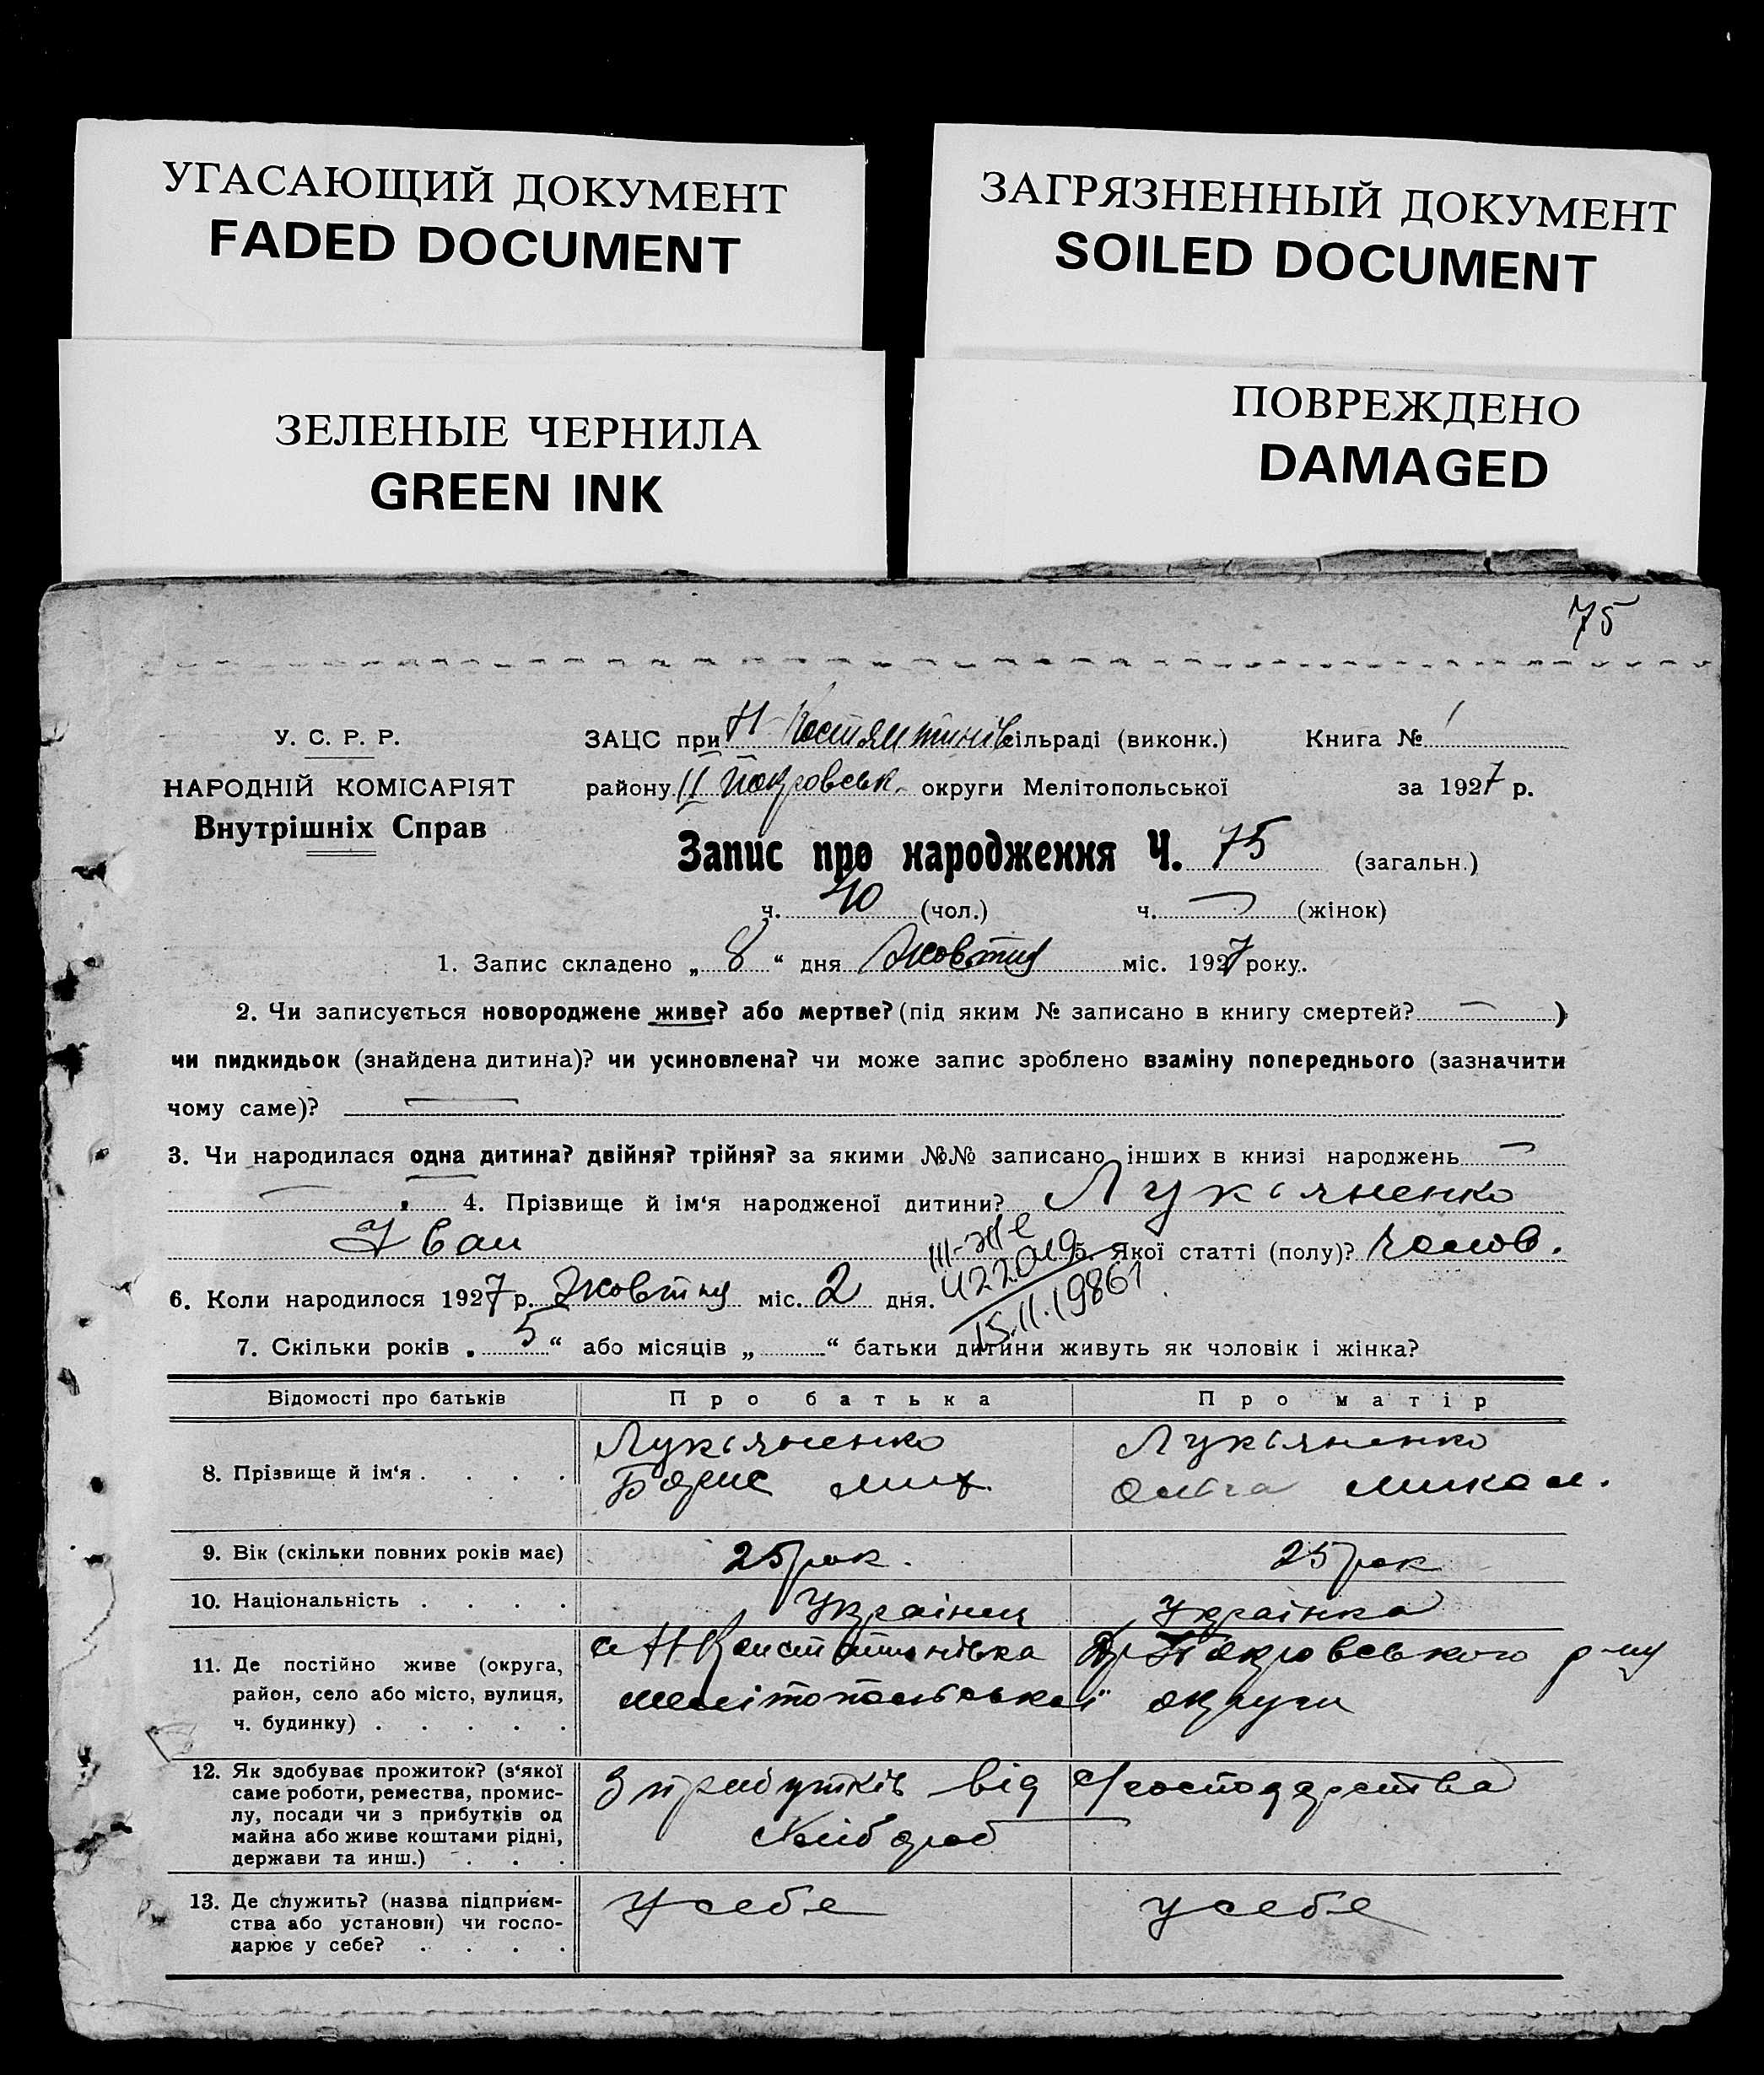 УГАСАЮЩИЙ ДОКУМЕНТ
FADED DOCUMENT
ЗАГРЯЗНЕННЫЙ ДОКУМЕНТ
SOILED DOCUMENT
ЗЕЛЕНЫЕ ЧЕРНИЛА
GREEN INK
ПОВРЕЖДЕНО
DAMAGED
75
У. С. Р. Р.
НАРОДНІЙ КОМІСАРІЯТ
Внутрішніх Справ
ЗАЦС при Н-Костянтинів сільраді (виконк.) Книга № 1
району II Покровськ. округи Мелітопольської за 1927 р.
Запис про народження Ч. 75 (загальн.)
ч. 40 (чол.) ч. — (жінок)
1. Запис складено „ 8 “ дня Жовтня міс. 1927 року.
2. Чи записується новороджене живе? або мертве? (під яким № записано в книгу смертей? — )
чи пидкидьок (знайдена дитина)? чи усиновлена? чи може запис зроблено взаміну попереднього (зазначити
чому саме)? —
3. Чи народилася одна дитина? двійня? трійня? за якими №№ записано інших в книзі народжень —
— . 4. Прізвище й ім‘я народженої дитини? Лукьяненко
Іван 5. Якої статті (полу)? чолов.
III-ЖС
422019
15.11.1986
6. Коли народилося 1927 р. Жовтня міс. 2 дня.
7. Скільки років „ 5 “ або місяців „ “ батьки дитини живуть як чоловік і жінка?
Відомості про батьків Про батька Про матір
8. Прізвище й ім‘я . . . .
Лукьяненко
Борис Мих.
Лукьяненко
Ольга Микол.
9. Вік (скільки повних років має) 25 рок. 25 рок
10. Національність . . . . Українец Українка
11. Де постійно живе (округа,
район, село або місто, вулиця,
ч. будинку) . . . . .
с Н Констатинівка Покровського р-ну
Мелітопольської округи
12. Як здобуває прожиток? (з‘якої
саме роботи, ремества, промис-
лу, посади чи з прибутків од
майна або живе коштами рідні,
держави та инш.) . . .
З прибутків від с/господарства
Хлібороб
13. Де служить? (назва підприєм-
ства або установи) чи госпо-
дарює у себе? . . . .
У себе
у себе